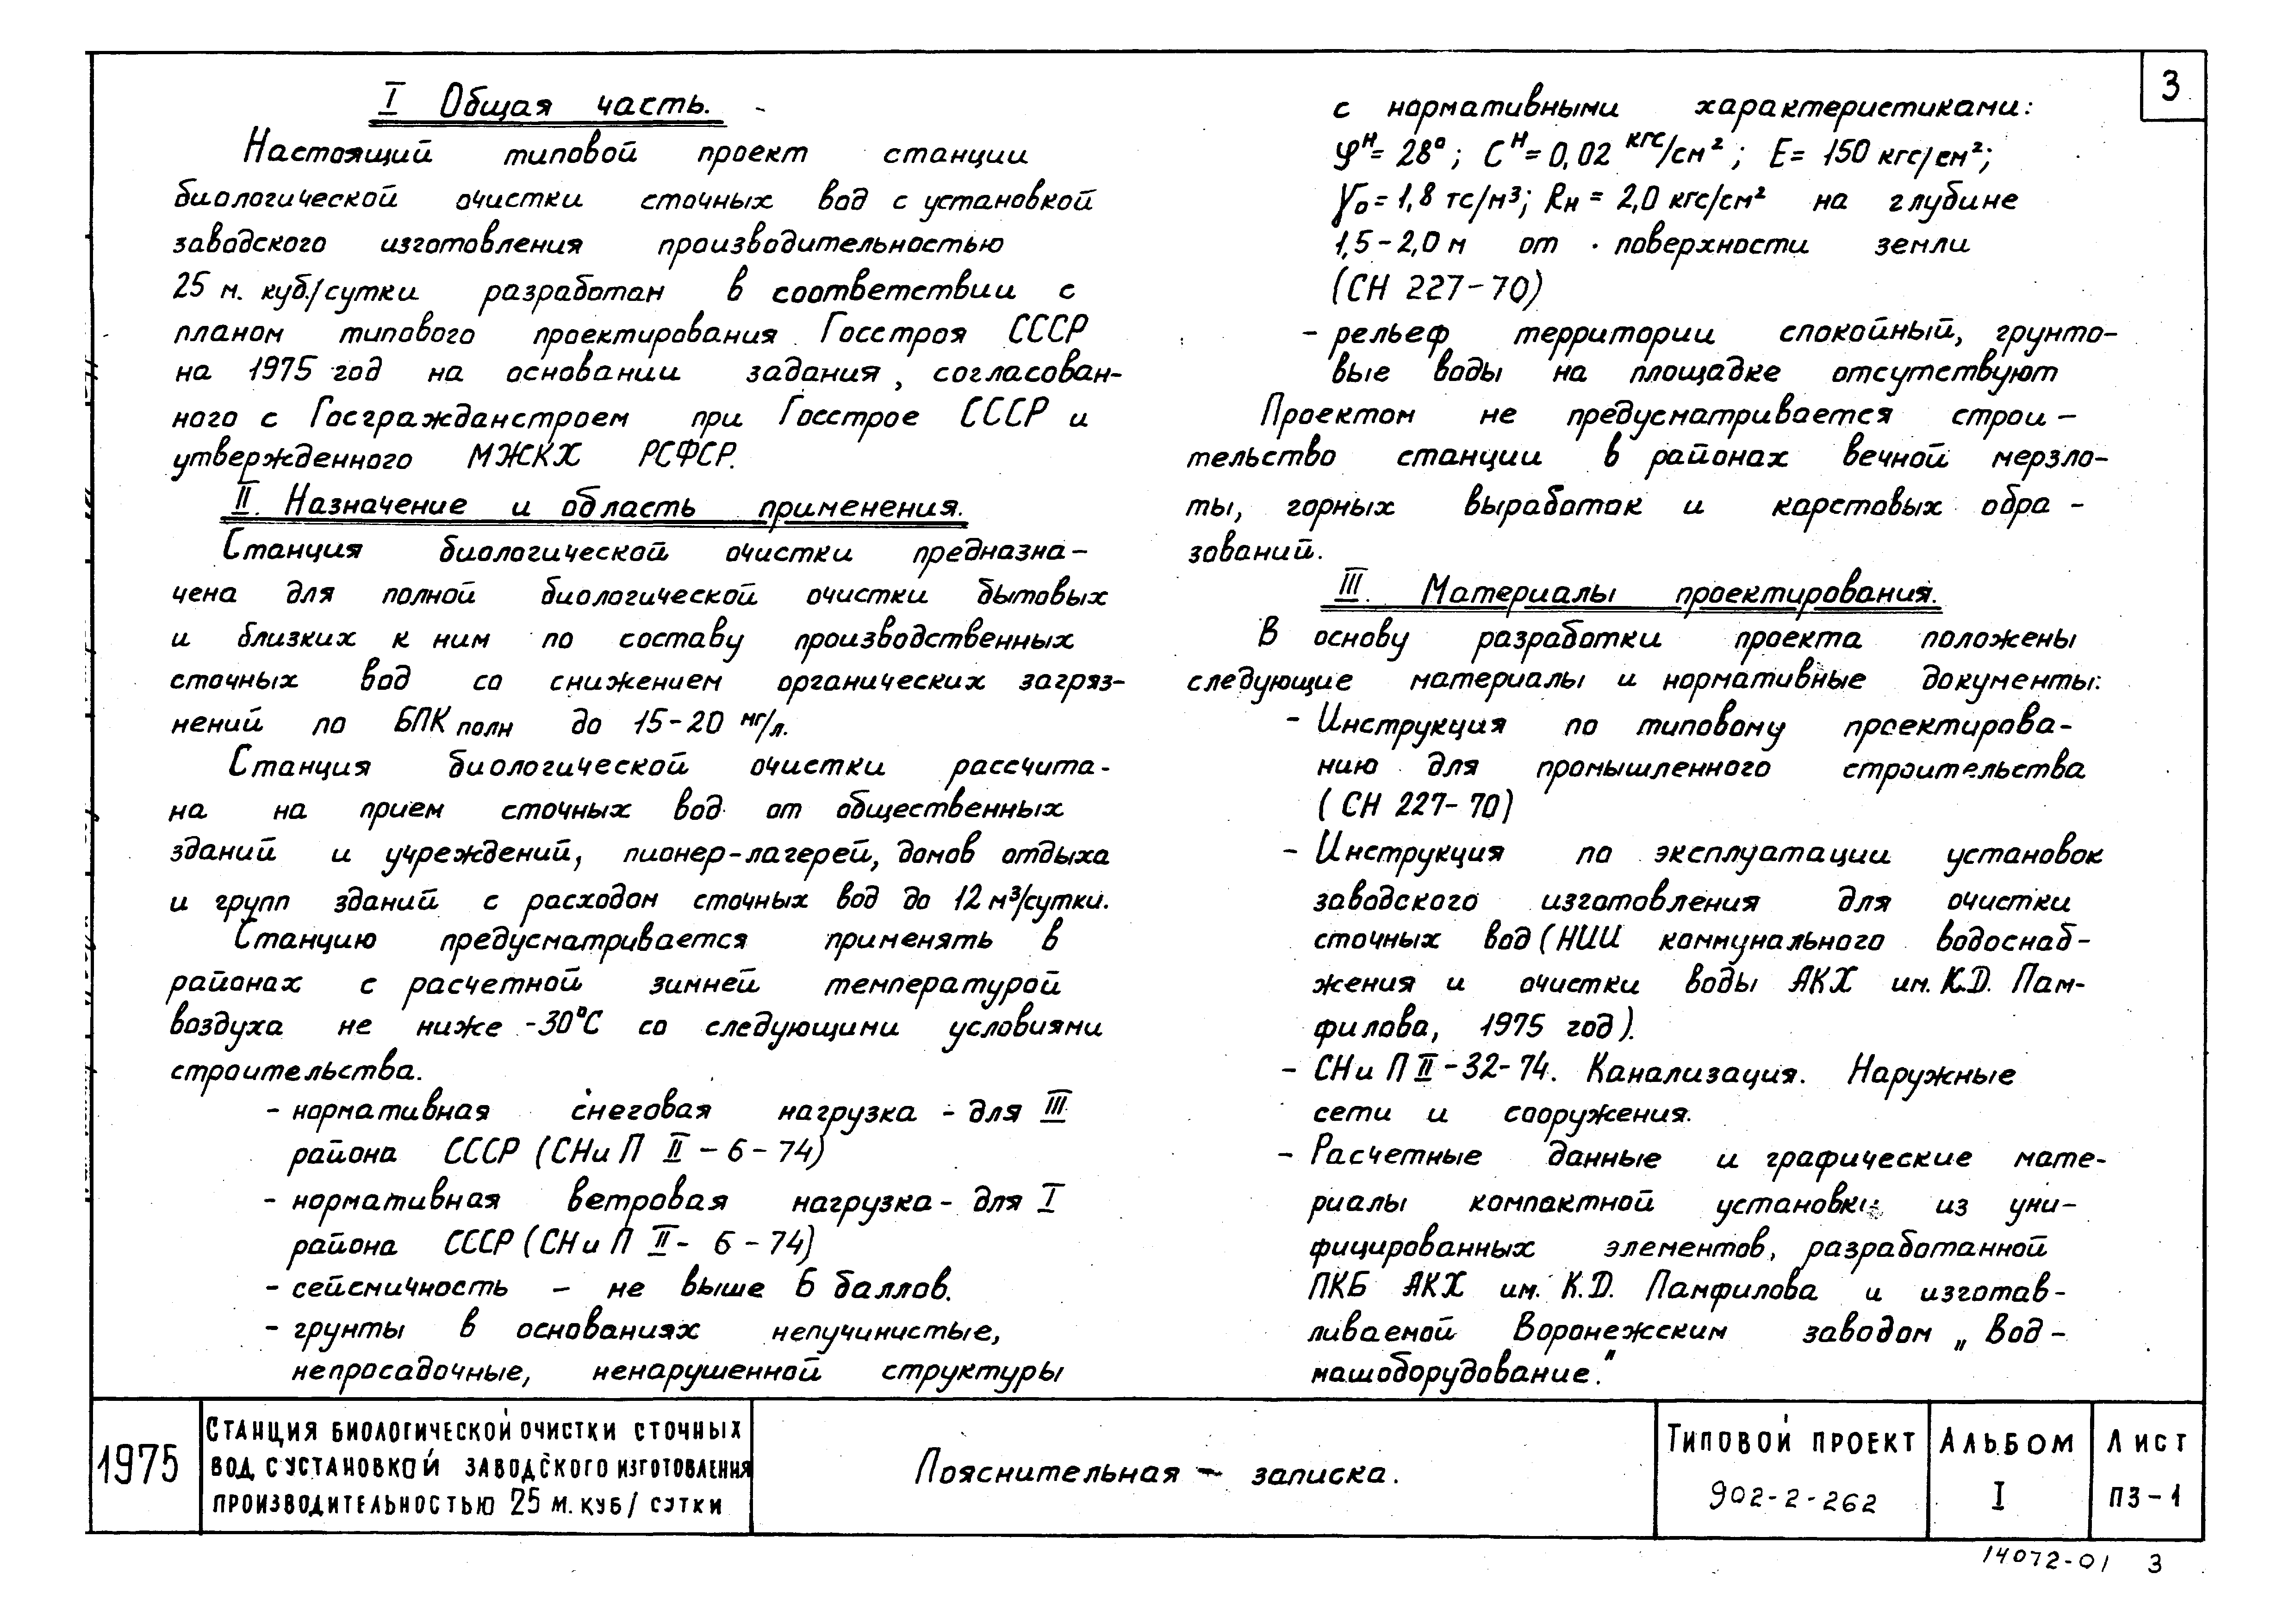 3
I Общая часть.
Настоящий типовой проект станции
биологической очистки сточных вод с установкой
заводского изготовления производительностью
25 м. куб./сутки разработан в соответствии с
планом типового проектирования Госстроя СССР
на 1975 год на основании задания, согласован-
ного с Госгражданстроем при Госстрое СССР и
утвержденного МЖКХ РСФСР.
II. Назначение и область применения.
Станция биологической очистки предназна-
чена для полной биологической очистки бытовых
и близких к ним по составу производственных
сточных вод со снижением органических загряз-
нений по БПК полн до 15-20 мг/л.
Станция биологической очистки рассчита-
на на прием сточных вод от общественных
зданий и учреждений, пионер-лагерей, домов отдыха
и групп зданий с расходом сточных вод до 12 м³/сутки.
Станцию предусматривается применять в
районах с расчетной зимней температурой
воздуха не ниже -30°С со следующими условиями
строительства.
- нормативная снеговая нагрузка - для III
района СССР (СНиП II-6-74)
- нормативная ветровая нагрузка - для I
района СССР (СНиП II-6-74)
- сейсмичность - не выше 6 баллов.
- грунты в основаниях непучинистые,
непросадочные, ненарушенной структуры
с нормативными характеристиками:
φᴴ= 28°; Cᴴ=0,02 кгс/см²; E= 150 кгс/см²;
γ₀=1,8 тс/м³; Rн = 2,0 кгс/см² на глубине
1,5-2,0 м от поверхности земли
(СН 227-70)
- рельеф территории спокойный, грунто-
вые воды на площадке отсутствуют
Проектом не предусматривается строи-
тельство станции в районах вечной мерзло-
ты, горных выработок и карстовых обра-
зований.
III. Материалы проектирования.
В основу разработки проекта положены
следующие материалы и нормативные документы:
- Инструкция по типовому проектирова-
нию для промышленного строительства
(СН 227-70)
- Инструкция по эксплуатации установок
заводского изготовления для очистки
сточных вод (НИИ коммунального водоснаб-
жения и очистки воды АКХ им. К.Д. Пам-
филова, 1975 год).
- СНиП II-32-74. Канализация. Наружные
сети и сооружения.
- Расчетные данные и графические мате-
риалы компактной установки из уни-
фицированных элементов, разработанной
ПКБ АКХ им. К.Д. Памфилова и изготав-
ливаемой Воронежским заводом „Вод-
машоборудование."
1975
Станция биологической очистки сточных
вод с установкой заводского изготовления
производительностью 25 м.куб/сутки
Пояснительная - записка.
Типовой проект
902-2-262
Альбом
I
Лист
ПЗ-1
14072-01 3